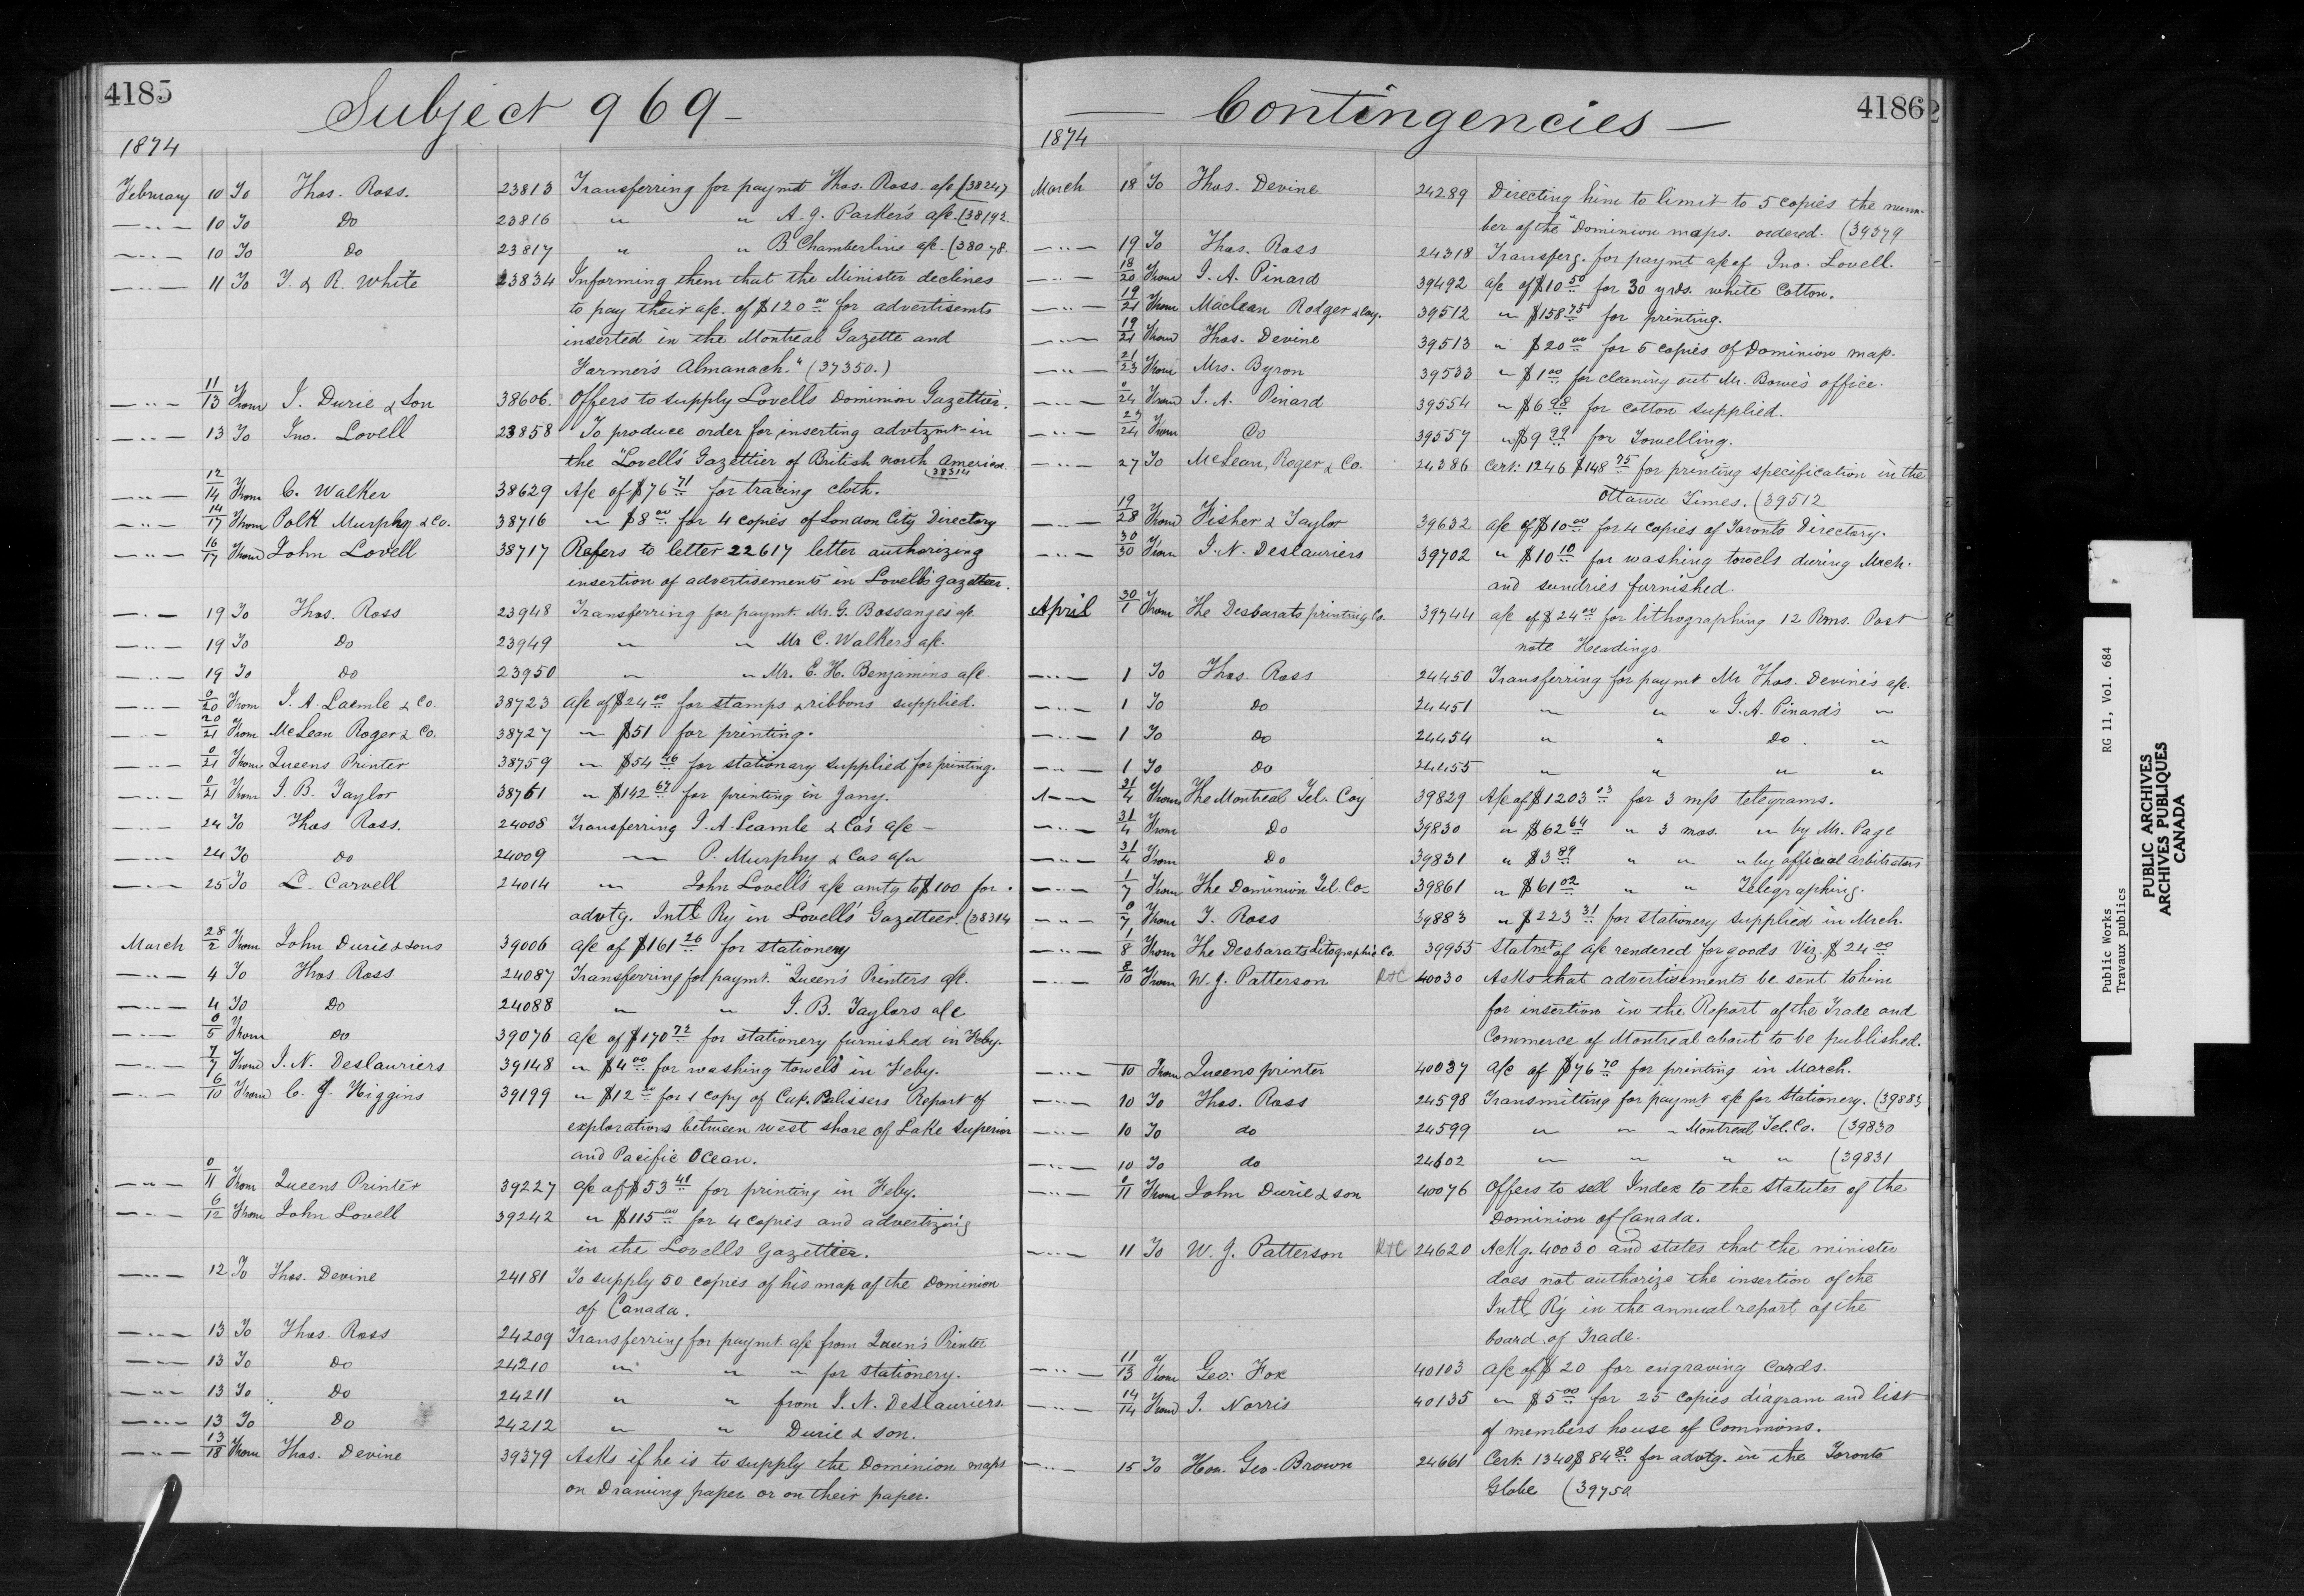 4185
Subject 969 -
1874
February 10 To Thos. Ross. 23813 Transferring for paymt Thos. Ross. a/c (38247
" 10 To Do 23816 " " A. J. Parker's a/c. (38192.
" 10 To Do 23817 " " B. Chamberlins a/c. (38078.
" 11 To T. & R. White 23834 Informing them that the Minister declines
to pay their a/c. of $120 00 for advertisemts
inserted in the Montreal Gazette and
Farmer's Almanach." (37350.)
" 11/13 From J. Durie & Son 38606. Offers to supply Lovells Dominion Gazettier.
" 13 To Jno. Lovell 23858 To produce order for inserting advtzmt in
the "Lovell's Gazettier of British north America.
(38314
" 12/14 From C. Walker 38629 A/c of $76 71 for tracing cloth.
" 14/17 From Polk Murphy & Co. 38716 " $8 00 for 4 copies of London City Directory
" 16/17 From John Lovell 38717 Refers to letter 22617 letter authorizing
insertion of advertisements in Lovell's gazetteer.
" 19 To Thos. Ross 23948 Transferring for paymt. Mr. G. Bossanges a/c.
" 19 To Do 23949 " " Mr C. Walker's a/c.
" 19 To Do 23950 " " Mr. E. H. Benjamins a/c.
" 0/20 From J. A. Laemle & Co. 38723 a/c of $24 00 for stamps & ribbons supplied.
" 20/21 From McLean Roger & Co. 38727 " $51 for printing.
" 0/21 From Queens Printer 38759 " $54 46 for stationary supplied for printing.
" 0/21 From J. B. Taylor 38761 " $142 67 for printing in Jany.
" 24 To Thos Ross. 24008 Transferring J. A. Leamle & Co's a/c -
" 24 To do 24009 " P. Murphy & Cos a/c
" 25 To L. Carvell 24014 " John Lovell's a/c amtg to $100 for
advtg. Intl Ry in Lovells' Gazettier. (38314
March 28/2 From John Durie & sons 39006 a/c of $161 26 for stationery
" 4 To Thos. Ross 24087 Transferring for paymt. "Queen's Printers a/c.
" 4 To Do 24088 " " J. B. Taylors a/c
" 0/5 From Do 39076 a/c of $170 72 for stationery furnished in Feby.
" 7/7 From J. N. Deslauriers 39148 " $4 00 for washing towels in Feby.
" 6/10 From C. J. Higgins 39199 " $12 00 for 1 copy of Cap. Palissers Report of
explorations between west shore of Lake Superior
and Pacific Ocean.
" 0/11 From Queens Printer 39227 a/c of $53 41 for printing in Feby.
" 6/12 From John Lovell 39242 " $115 00 for 4 copies and advertizing
in the Lovells Gazettier.
" 12 To Thos. Devine 24181 To supply 50 copies of his map of the Dominion
of Canada.
" 13 To Thos. Ross 24209 Transferring for paymt a/c from Queen's Printer
" 13 To Do 24210 " " " for stationery.
" 13 To Do 24211 " " from J. N. Deslauriers.
" 13 To Do 24212 " " Durie & son.
" 13/18 From Thos. Devine 39379 Asks if he is to supply the Dominion maps
on Drawing paper or on their paper.
4186
Contingencies -
1874
March 18 To Thos. Devine 24289 Directing him to limit to 5 copies the num-
ber of the "Dominion maps. ordered. (39379
" 19 To Thos. Ross 24318 Transferg. for paymt a/c of Jno. Lovell.
" 18/20 From J. A. Pinard 39492 a/c of $10 50 for 30 yrds. white Cotton.
" 19/21 From Maclean Rodger & Coy. 39512 " $158 75 for printing.
" 19/21 From Thos. Devine 39513 " $20 00 for 5 copies of Dominion map.
" 21/23 From Mrs. Byron 39533 " $1 00 for cleaning out Mr. Bowe's office.
" 0/24 From J. A. Pinard 39554 " $6 98 for cotton supplied.
" 23/24 From Do 39557 " $9 99 for Towelling.
" 27 To McLean, Roger & Co. 24386 Cert: 1246 $148 75 for printing specification in the
Ottawa Times. (39512
" 19/28 From Fisher & Taylor 39632 a/c of $10 00 for 4 copies of Toronto Directory.
" 30/30 From J. N. Deslauriers 39702 " $10 10 for washing towels during Mrch.
and sundries furnished.
April 30/1 From The Desbarats printing Co. 39744 a/c of $24 00 for lithographing 12 Rms. Post
note Headings.
" 1 To Thos. Ross 24450 Transferring for paymt Mr Thos. Devine's a/c.
" 1 To Do 24451 " " " J. A. Pinard's "
" 1 To Do 24454 " " Do. "
" 1 To Do 24455 " " " "
" 31/4 From The Montreal Tel. Coy 39829 A/c of $1203 13 for 3 m/s telegrams.
" 31/4 From Do 39830 " $62 64 " 3 mos. " by Mr. Page
" 31/4 From Do 39831 " $3 89 " " " by official arbitrators
" 1/7 From The Dominion Tel. Co. 39861 " $61 02 " " Telegraphing.
" 0/7 From T. Ross 39883 " $223 31 for stationery supplied in Mrch.
" 1/8 From The Desbarats Litographic Co. 39955 Statmt of a/c rendered for goods Viz. $24 00
" 8/10 From W. J. Patterson R&C 40030 Asks that advertisements be sent to him
for insertion in the Report of the Trade and
Commerce of Montreal about to be published.
" 10 From Queens printer 40037 a/c of $76 70 for printing in March.
" 10 To Thos. Ross 24598 Transmitting for paymt a/c for Stationery. (39883
" 10 To do 24599 " " " Montreal Tel. Co. (39830
" 10 To do 24602 " " " " (39831
" 0/11 From John Durie & son 40076 Offers to sell Index to the Statutes of the
Dominion of Canada.
" 11 To W. J. Patterson R&C 24620 Ackg. 40030 and states that the minister
does not authorize the insertion of the
Intl R'y in the annual report of the
board of Trade.
" 11/13 From Geo: Fox 40103 a/c of $20 for engraving Cards.
" 14/14 From J. Norris 40135 " $5 00 for 25 copies diagram and list
of members house of Commons.
" 15 To Hon. Geo. Brown 24661 Cert. 1340 $84 80 for advtg. in the Toronto
Globe (39750
Public Works RG 11, Vol. 684
Travaux publics
PUBLIC ARCHIVES
ARCHIVES PUBLIQUES
CANADA